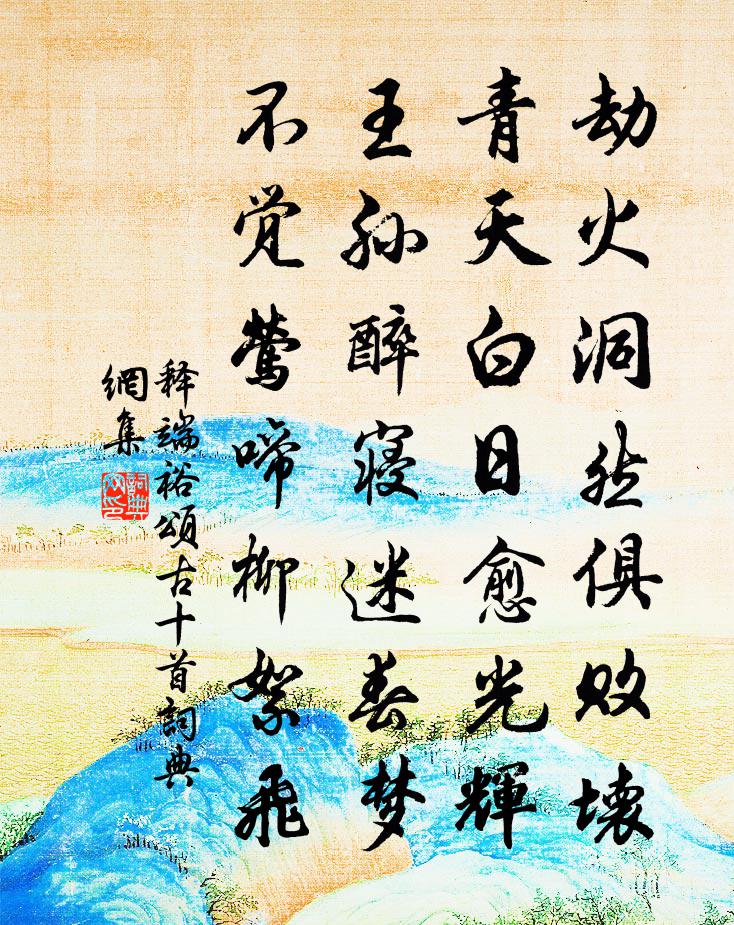 劫火洞然俱败壊
青天白日愈光輝
王孙醉寝迷春梦
不觉莺啼柳絮飛
释端裕頌古十首詞典
網集
詞典